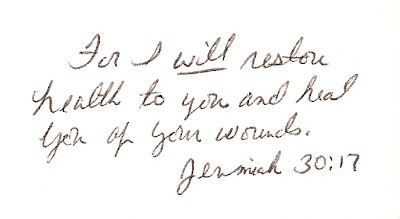 For I will restore
health to you and heal
you of your wounds.
Jeremiah 30:17